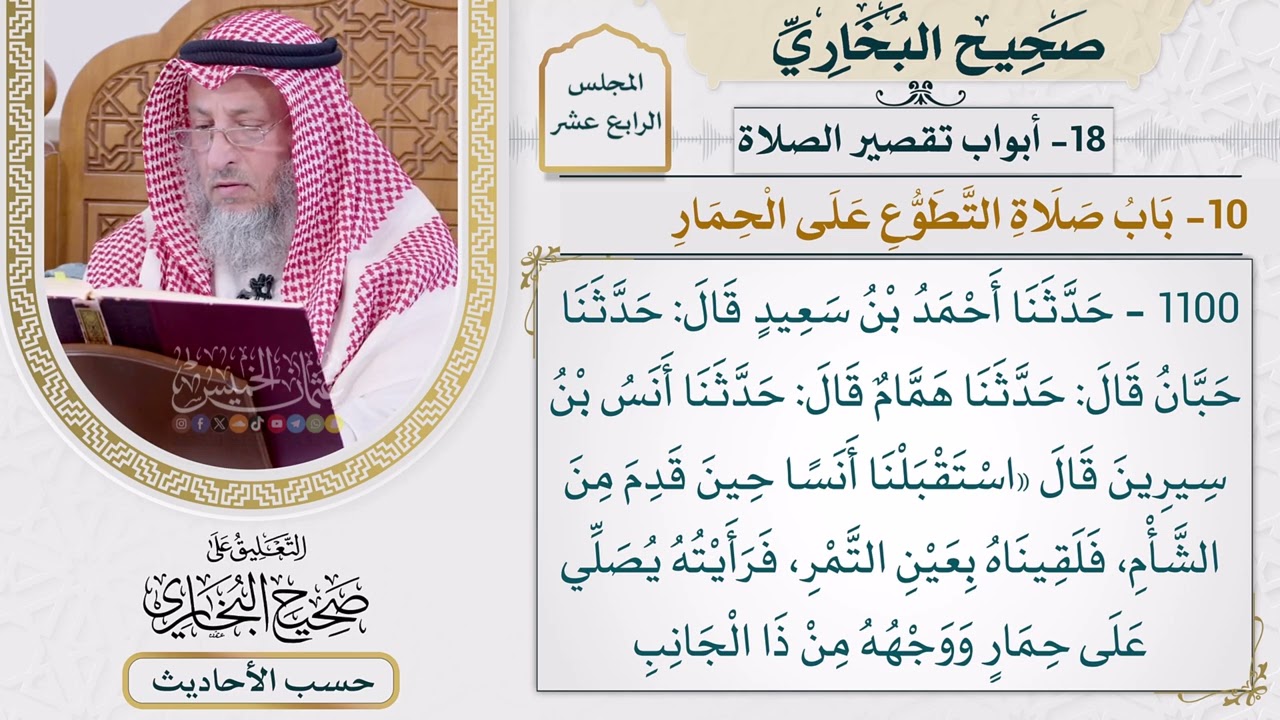 صَحِيحُ البُخَارِيِّ
المجلس
الرابع عشر
18- أبواب تقصير الصلاة
10- بَابُ صَلَاةِ التَّطَوُّعِ عَلَى الْحِمَارِ
1100 - حَدَّثَنَا أَحْمَدُ بْنُ سَعِيدٍ قَالَ: حَدَّثَنَا
حَبَّانُ قَالَ: حَدَّثَنَا هَمَّامٌ قَالَ: حَدَّثَنَا أَنَسُ بْنُ
سِيرِينَ قَالَ «اسْتَقْبَلْنَا أَنَسًا حِينَ قَدِمَ مِنَ
الشَّأْمِ، فَلَقِينَاهُ بِعَيْنِ التَّمْرِ، فَرَأَيْتُهُ يُصَلِّي
عَلَى حِمَارٍ وَوَجْهُهُ مِنْ ذَا الْجَانِبِ
عثمان الخميس
التَّعْلِيقُ عَلَى
صَحِيحُ البُخَارِي
حسب الأحاديث